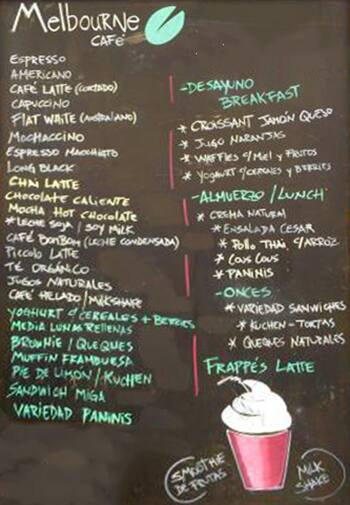 Melbourne
CAFé
ESPRESSO
AMERICANO
CAFÉ LATTE (CORTADO)
CAPUCCINO
FLAT WAITE (AUSTRALIANO)
MOCHACCINO
ESPRESSO MACCHIATO
LONG BLACK
CHAI LATTE
CHOCOLATE CALIENTE
MOCHA HOT CHOCOLATE
*LECHE SOJA / SOY MILK
CAFÉ BONBOM (LECHE CONDENSADA)
PICCOLO LATTE
TÉ ORGÁNICO
JUGOS NATURALES
CAFÉ HELADO / MILKSHAKE
YOGHURT C/CEREALES + BERRIES
MEDIA LUNAS RELLENAS
BROWNIE / QUEQUES
MUFFIN FRAMBUESA
PIE DE LIMON / KUCHEN
SANDWICH MIGA
VARIEDAD PANINIS
-DESAYUNO
BREAKFAST
* CROISSANT JAMÓN QUESO
* JUGO NARANJAS
* WAFFLES C/MIEL Y FRUTOS
* YOGHURT C/CEREALES Y BERRIES
-ALMUERZO / LUNCH
* CREMA NATURAL
* ENSALADA CESAR
* POLLO THAI C/ARROZ
* COUS COUS
* PANINIS
-ONCES
* VARIEDAD SANWICHES
* KUCHEN - TORTAS
* QUEQUES NATURALES
FRAPPÉS LATTE
SMOOTHIE
DE FRUTAS
MILK
SHAKE